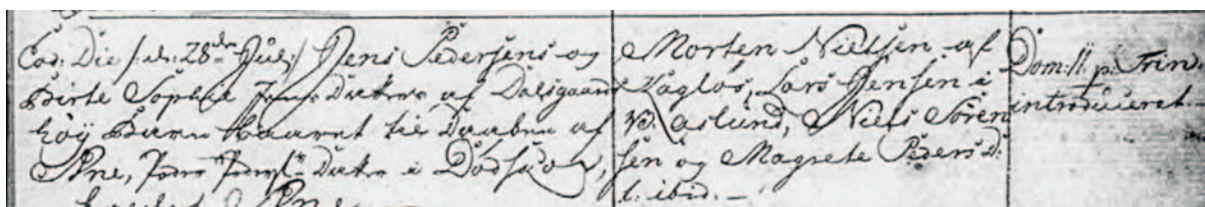 Eod: Die /: d: 28de Juli :/ Jens Pedersens og
Birte Sophie Jens Datters af Dalsgaard
höy Barn baaret til Daaben af
Ane, Peders Datter i
Ane
Morten Nielsen af
Lars Jensen i
V. aslund, Niels Sören
sen og Magrete Peders D:
t: ibid. —
Dom: 11 p. Trin.
introduceret —